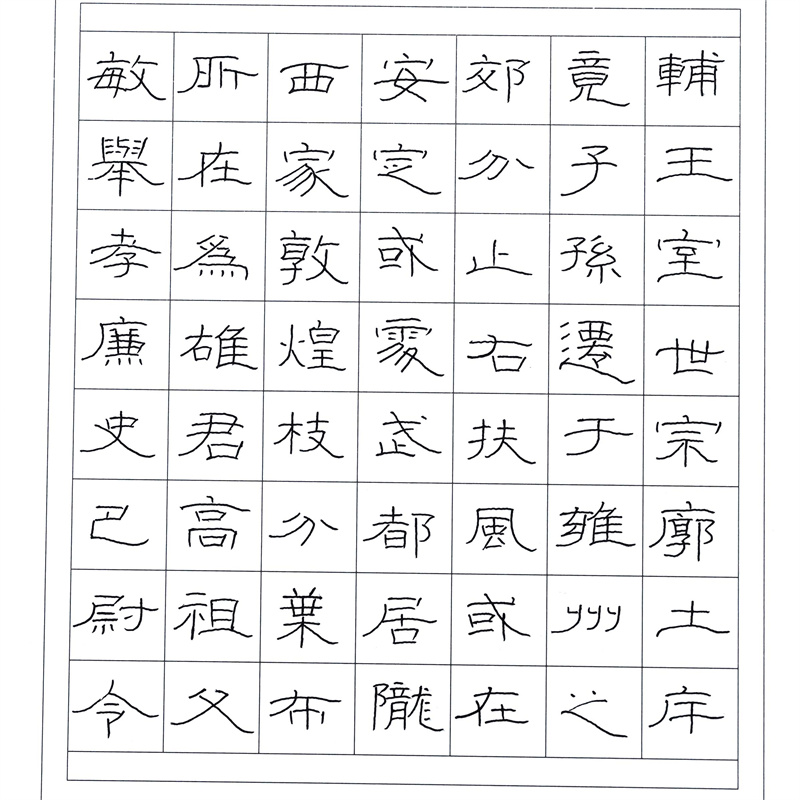 輔王室世宗廓土斥
竟子孫遷于雍州之
郊分止右扶風或在
安定或處武都居隴
西家敦煌枝分葉布
所在爲雄君高祖父
敏舉孝廉史巴尉令